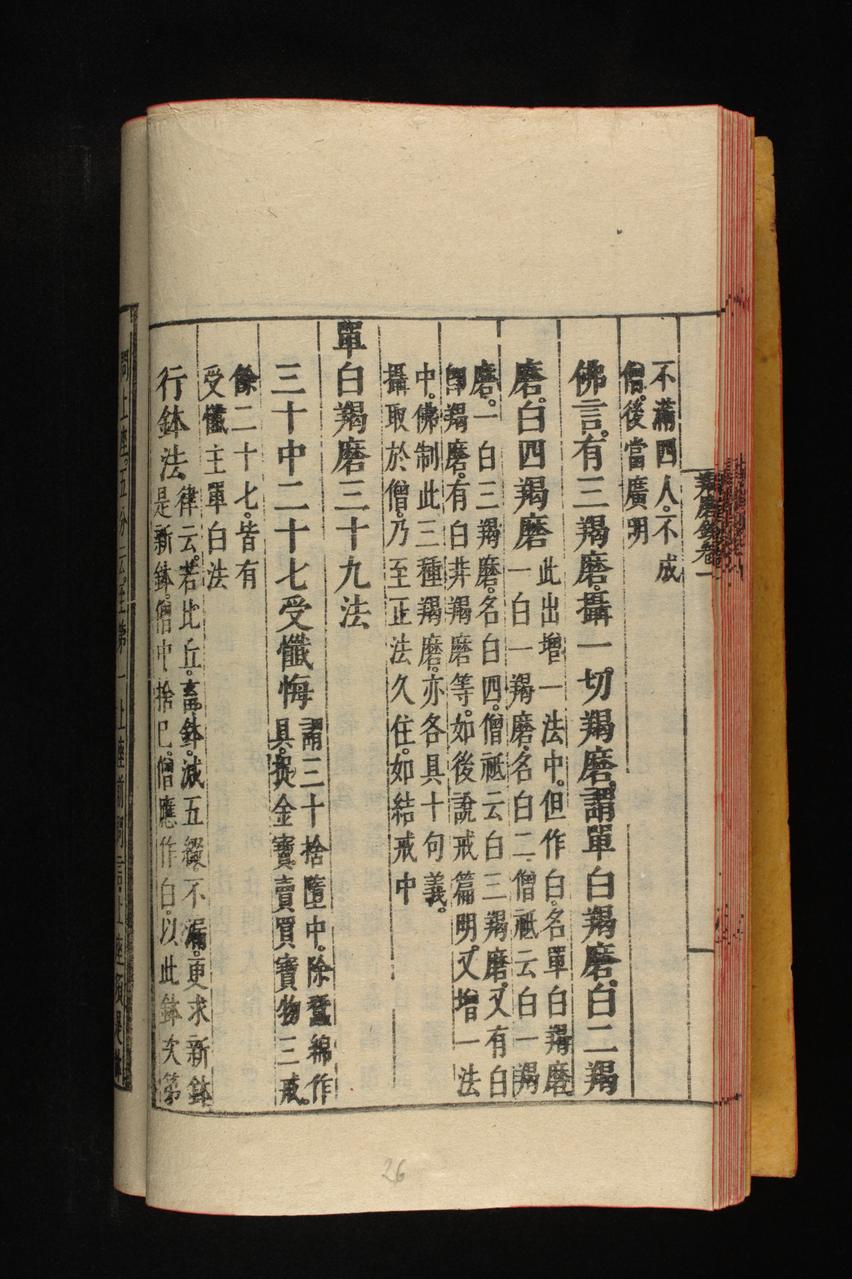 羯磨鈔卷一
不滿四人。不成
僧。後當廣明
佛言。有三羯磨。攝一切羯磨。謂單白羯磨。白二羯
磨。白四羯磨
此出增一法中。但作白。名單白羯磨
一白一羯磨。名白二。僧祗云白一羯
磨。一白三羯磨。名白四。僧祗云白三羯磨。又有白
即羯磨。有白非羯磨等。如後說戒篇明又增一法
中。佛制此三種羯磨。亦各具十句義。
攝取於僧。乃至正法久住。如結戒中
單白羯磨三十九法
三十中二十七受懺悔
謂三十捨墮中。除蠶綿作
具。捉金寶。賣買寶物三戒。
餘二十七。皆有
受懺主單白法
行鉢法
律云。若比丘。畜鉢。減五綴。不漏。更求新鉢
是新鉢。僧中捨已。僧應作白。以此鉢次第